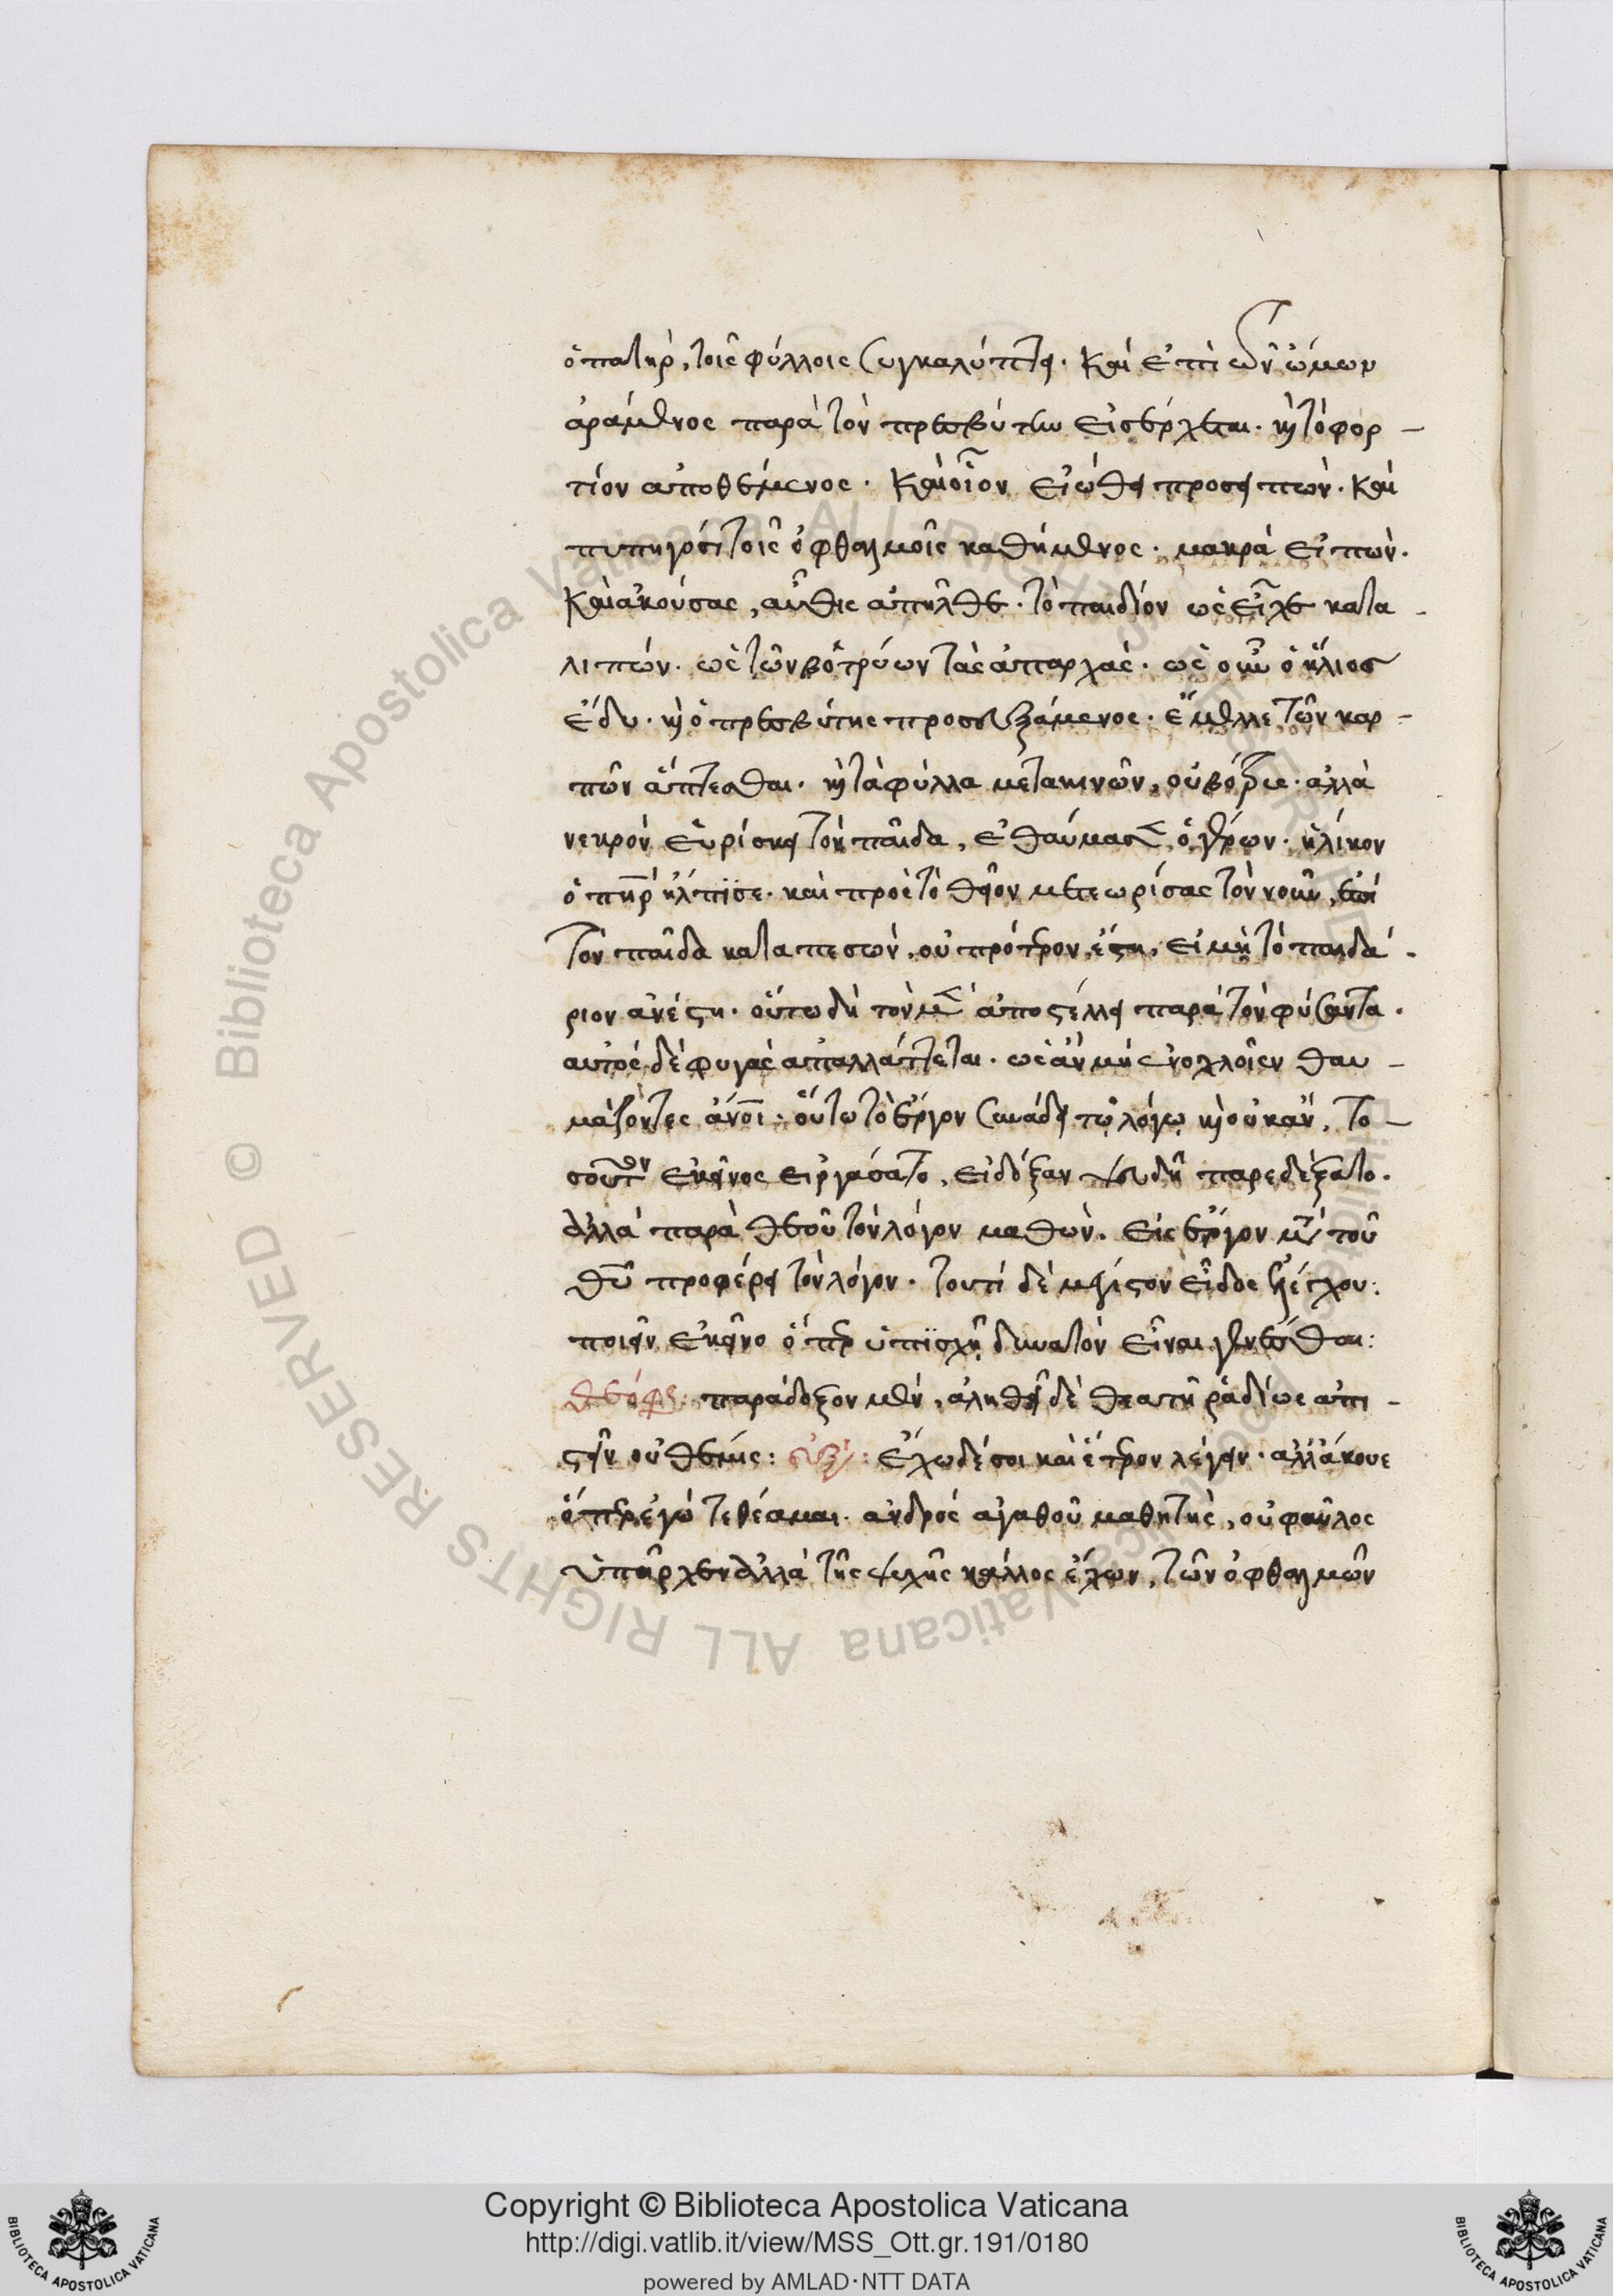 ὁ πατηρ, τοῖς φύλλοις συγκαλύπτει. καὶ ἐπὶ τῶν ὤμων
ἀράμενος παρὰ τὸν πρεσβύτην εἰσέρχεται. καὶ τὸ φορ-
τίον ἀποθέμενος. καὶ οἷον εἰώθει προσειπὼν. καὶ
τοῖς ὀφθαλμοῖς καθήμενος. μακρὰ εἰπὼν.
καὶ ἀκούσας, αὖθις ἀπῆλθε. τὸ παιδίον ὡς εἶχε κατα-
λιπών. ὡς τῶν βοτρύων τὰς ἀπαρχάς. ὡς οὖν ὁ ἥλιος
ἔδυ. καὶ ὁ πρεσβύτης προσευξάμενος. ἔμελλε τῶν καρ-
πῶν ἅπτεσθαι. καὶ τὰ φύλλα μετακινῶν, οὐ βότρυς. ἀλλὰ
νεκρὸν εὑρίσκει τὸν παῖδα, ἐθαύμασεν ὁ γέρων. ἡλίκον
ὁ πηρ ἤλπισε. καὶ πρὸς τὸ θεῖον μετεωρίσας τὸν νοῦν, ἐπὶ
τὸν παῖδα καταπεσών, οὐ πρότερον ἔστη, εἰ μὴ τὸ παιδά-
ριον ἀνέστη. οὕτω δὴ τὸν μὲν ἀποστέλλει παρὰ τὸν φύσαντα.
αὐτὸς δὲ φυγὰς ἀπαλλάττεται. ὡς ἂν μὴ ἐνοχλοῖεν θαυ-
μάζοντες ἄνοι. οὕτω τὸ ἔργον συνάδει τῷ λόγῳ καὶ οὐκ ἂν, το-
σοῦτον ἐκεῖνος εἰργάσατο, εἰ δόξαν ψευδῆ παρεδέξατο.
ἀλλὰ παρὰ θεοῦ τὸν λόγον μαθὼν. εἰς ἔργον μετὰ τοῦ
θυ προφέρει τὸν λόγον. τουτὶ δὲ μέγιστον εἶδος ἐλέγχου:
ποιεῖν ἐκεῖνο ὅπερ ὑπισχνῇ δυνατὸν εἶναι γενέσθαι:
θεόφρ: παράδοξον μὲν, ἀληθῆ δὲ θεατῇ ῥᾳδίως ἀπι-
στεῖν οὐ θέμις: εὐξί: ἔχω δέ σοι καὶ ἕτερον λέγειν. ἀλλ' ἄκουε
ὅπερ ἐγὼ τεθέαμαι. ἀνδρὸς ἀγαθοῦ μαθητὴς, οὐ φαῦλος
ὑπῆρχεν ἀλλὰ τῆς ψυχῆς κάλλος ἔχων, τῶν ὀφθαλμῶν
Copyright © Biblioteca Apostolica Vaticana
http://digi.vatlib.it/view/MSS_Ott.gr.191/0180
powered by AMLAD·NTT DATA
BIBLIOTECA APOSTOLICA VATICANA
BIBLIOTECA APOSTOLICA VATICANA
© Biblioteca Apostolica Vaticana ALL RIGHTS RESERVED